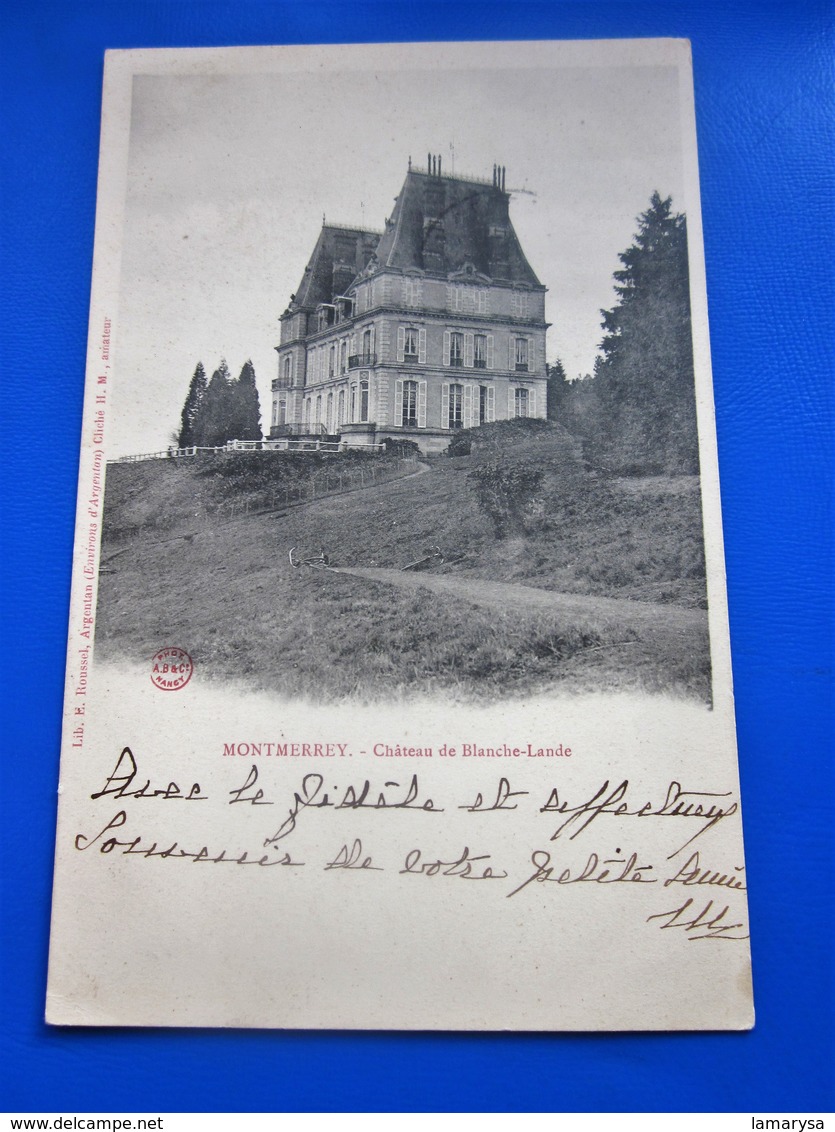 Lib. E. Roussel, Argentan (Environs d'Argenton) Cliché H. M., amateur
PHOT
A.B & Cie
NANCY
MONTMERREY. - Château de Blanche-Lande
Avec le fidèle et affectueux
Souvenir de votre petite amie
lamarysa